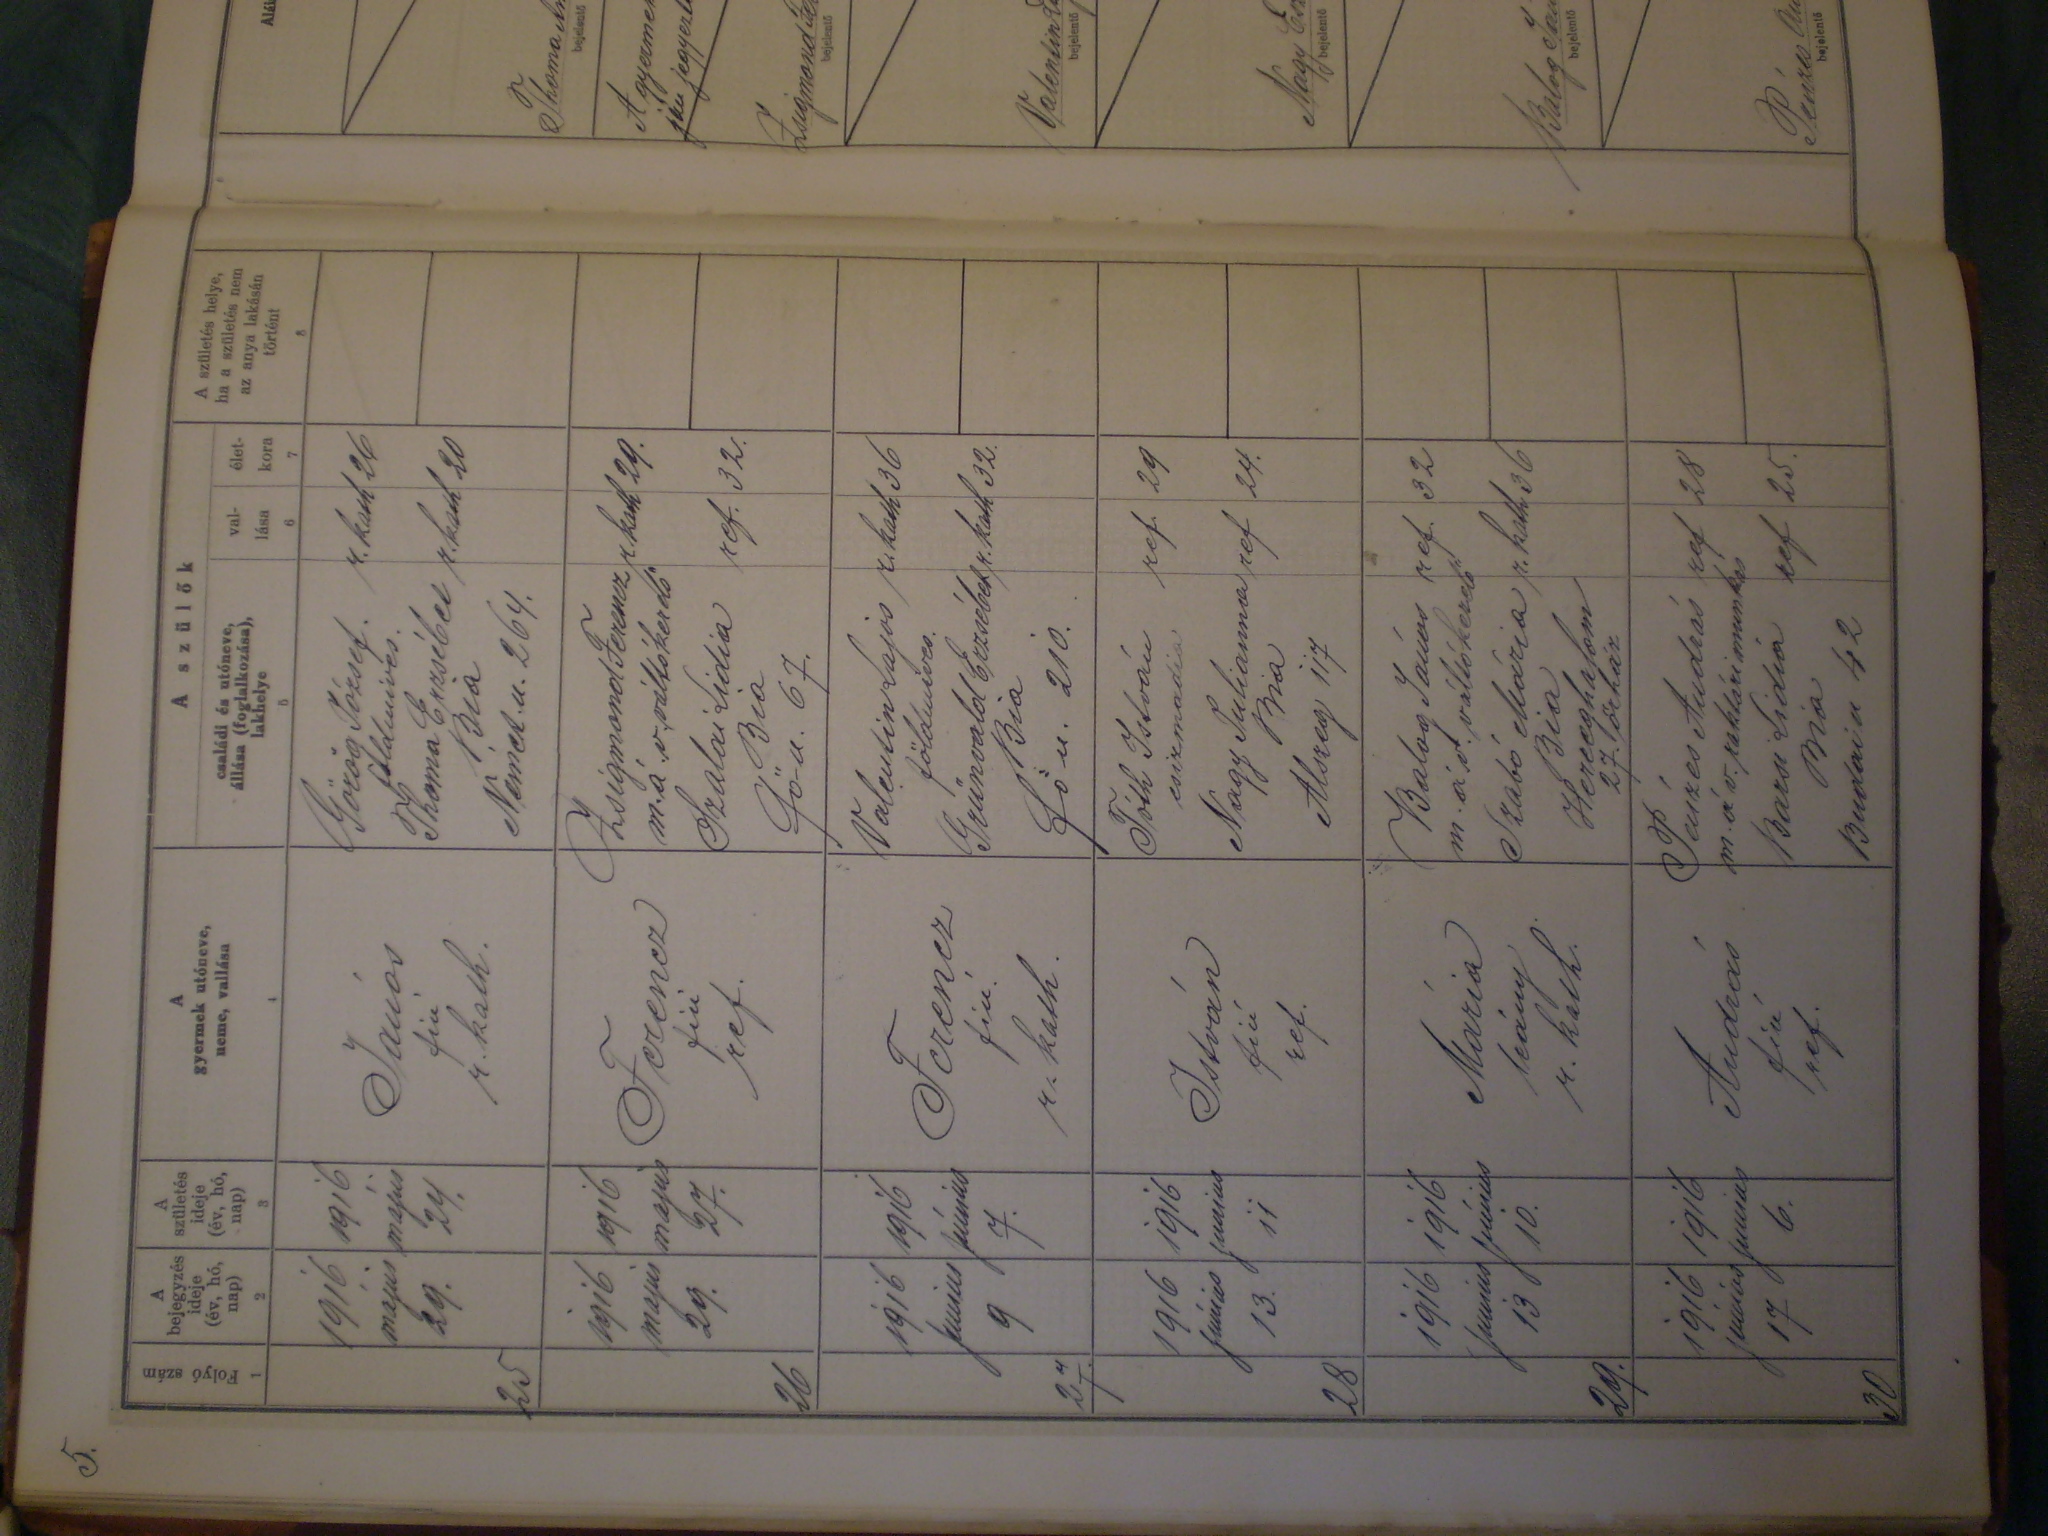 5.
Folyó szám
1
A
bejegyzés
ideje
(év, hó,
nap)
2
A
születés
ideje
(év, hó,
nap)
3
A
gyermek utóneve,
neme, vallása
4
A szülők
családi és utóneve,
állása (foglalkozása),
lakhelye
5
val-
lása
6
élet-
kora
7
A születés helye,
ha a születés nem
az anya lakásán
történt
8
25
1916
május
29.
1916
május
24.
János
fiú
r. kath.
Görög József.
földmíves.
r. kath 26
Thoma Erzsébet
r. kath 20
Bia
Német u. 264.
26
1916
május
29.
1916
május
27.
Ferencz
fiú
ref.
Zsigmond Ferencz
m. á. v. váltókerdő
r. kath 29.
Szalai Lidia
ref. 32.
Bia
Fő u. 67.
27.
1916
junius
9
1916
június
7.
Ferencz
fiú.
r. kath.
Valentin Lajos
földmíves.
r. kath 36
Grünvald Erzsébet
r. kath 32.
Bia
Fő u. 210.
28
1916
június
13.
1916
junius
11
István
fiú
ref.
Tóth István
csizmadia
ref. 29
Nagy Julianna
ref 24.
Bia
Alszeg 117
29.
1916
június
13
1916
június
10.
Mária
leány
r. kath.
Balog János
m. á. v. váltókezelő
ref. 32
Szabó Mária
r. kath 36
Bia
Herceghalom
27. őrház
30
1916
június
17
1916
junius
6.
András
fiú
ref.
Pénzes András
m. á. v. raktári munkás
ref 28
Barsi Lidia
ref 25.
Bia
Budai u 42
Thoma
bejelentő
A gyermek
jegyzet
Zsigmond
bejelentő
Valentin
bejelentő
Nagy
bejelentő
Balog
bejelentő
Pénzes
bejelentő